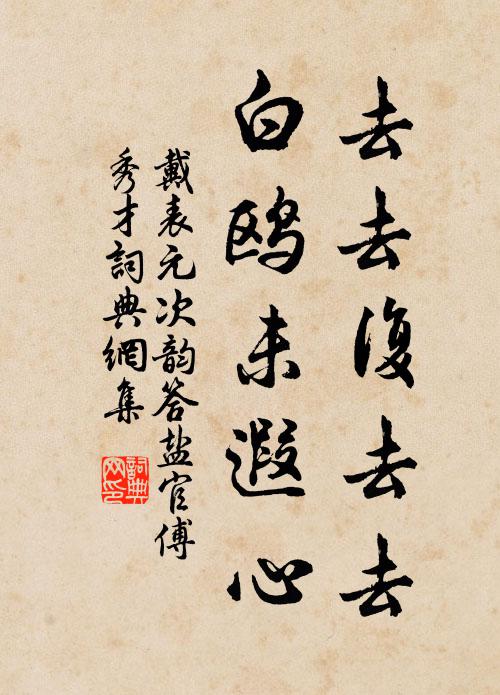 去去復去去
白鸥未遐心
戴表元次韵答盐官傅
秀才詞典網集
詞典
网印